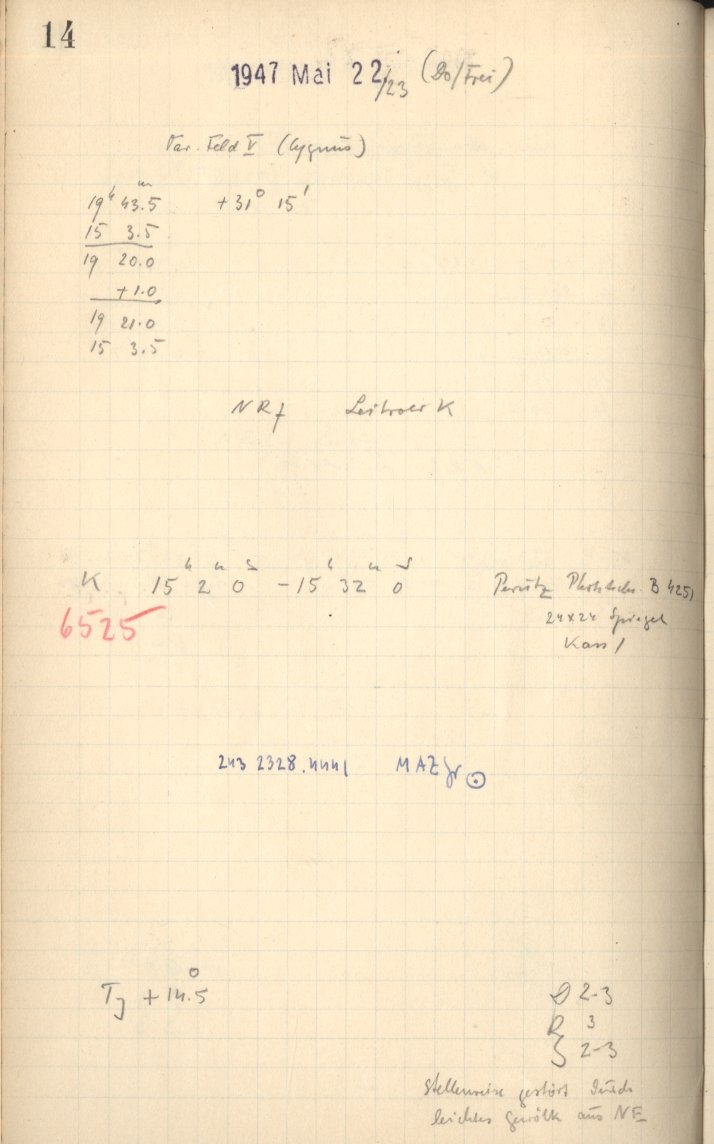 14
1947 Mai 22./23 (Do/Frei)
Var. Feld V (Cygnus)
19h 43.5m +31° 15'
15 3.5
19 20.0
+1.0
19 21.0
15 3.5
NRf K
K 15h 2m 0s - 15h 32m 0s Perutz B 4251
6525
24x24 Spiegel
Kass 1
243 2328.4441 MAZgr ☉
TJ +14.5°
D 2-3
R 3
S 2-3
Stellenweise gestört durch
leichtes Gewölk aus NE